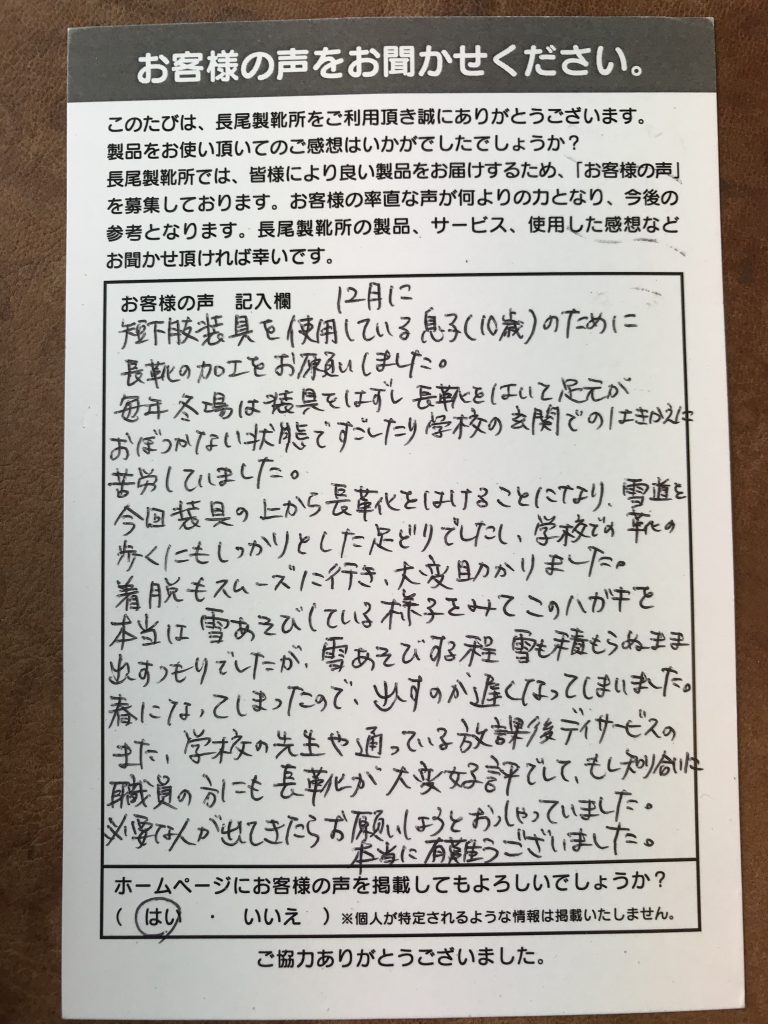 お客様の声をお聞かせください。
このたびは、長尾製靴所をご利用頂き誠にありがとうございます。
製品をお使い頂いてのご感想はいかがでしたでしょうか？
長尾製靴所では、皆様により良い製品をお届けするため、「お客様の声」
を募集しております。お客様の率直な声が何よりの力となり、今後の
参考となります。長尾製靴所の製品、サービス、使用した感想など
お聞かせ頂ければ幸いです。
お客様の声　記入欄　12月に
短下肢装具を使用している息子(10歳)のために
長靴の加工をお願いしました。
毎年冬場は装具をはずし長靴をはいて足元が
おぼつかない状態ですごしたり学校の玄関でのはきかえに
苦労していました。
今回装具の上から長靴をはけることになり、雪道を
歩くにもしっかりとした足どりでしたし、学校での靴の
着脱もスムーズに行き、大変助かりました。
本当は雪あそびしている様子をみてこのハガキを
出すつもりでしたが、雪あそびする程雪も積もらぬまま
春になってしまったので、出すのが遅くなってしまいました。
また、学校の先生や通っている放課後デイサービスの
職員の方にも長靴が大変好評でして、もし知り合いに
必要な人が出てきたらお願いしようとおっしゃっていました。
本当に有難うございました。
ホームページにお客様の声を掲載してもよろしいでしょうか？
（　はい　・　いいえ　）※個人が特定されるような情報は掲載いたしません。
ご協力ありがとうございました。